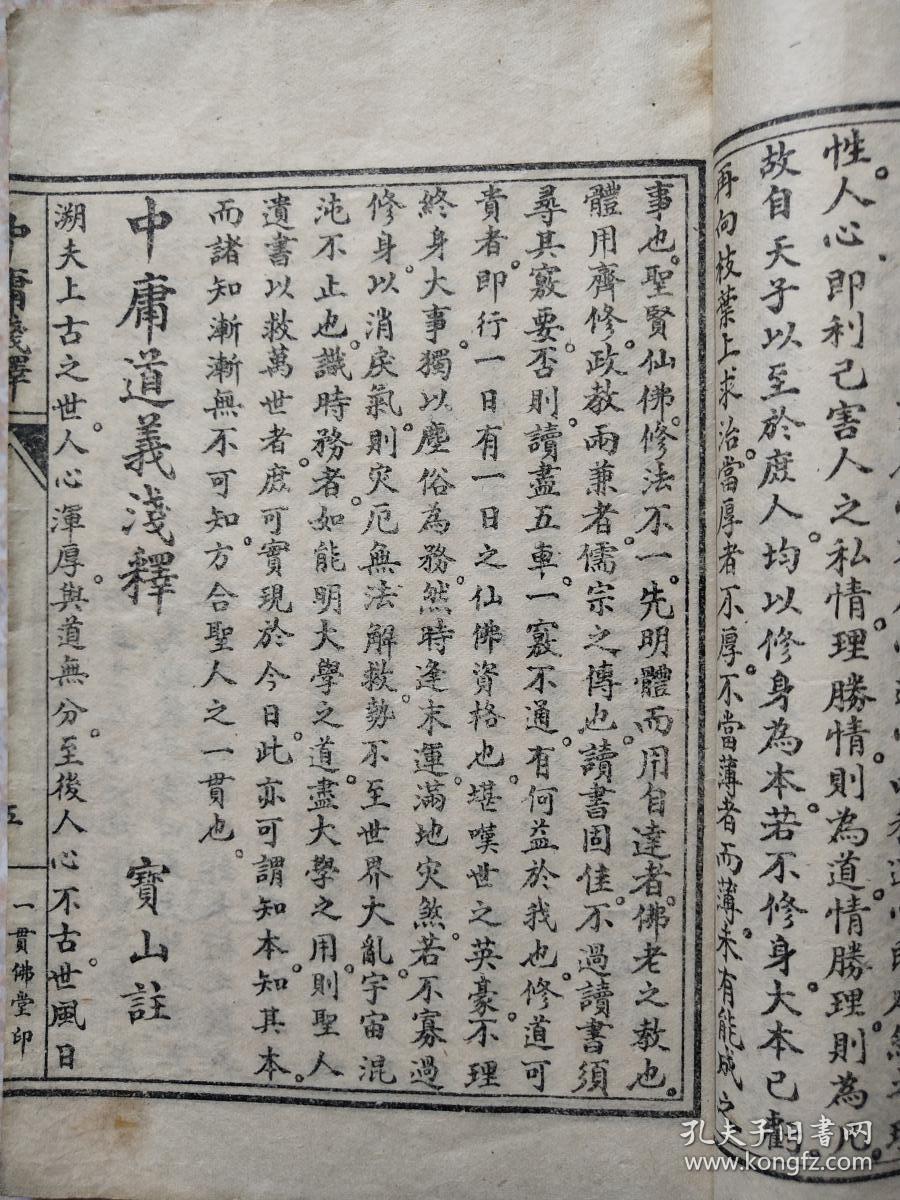 性。人心即利己害人之私情。理勝情。則為道。情勝理。則為凡。
故自天子以至於庶人。均以修身為本。若不修身。大本已虧。
再向枝葉上求治。當厚者不厚。不當薄者而薄。未有能成之
事也。聖賢仙佛。修法不一。先明體而用自達者。佛老之教也。
體用齊修。政教兩兼者。儒宗之傳也。讀書固佳。不過讀書須
尋其竅要。否則讀盡五車。一竅不通。有何益於我也。修道可
貴者。即行一日有一日之仙佛資格也。堪嘆世之英豪。不理
終身大事。獨以塵俗為務。然時逢末運。滿地灾煞。若不寡過
修身。以消戾氣。則灾厄無法解救。勢不至世界大亂。宇宙混
沌不止也。識時務者。如能明大學之道。盡大學之用。則聖人
遺書以救萬世者。庶可實現於今日。此亦可謂知本。知其本。
而諸知漸漸無不可知。方合聖人之一貫也。
中庸道義淺釋 寶山註
溯夫上古之世。人心渾厚。與道無分。至後人心不古。世風日
中庸淺釋
五
一貫佛堂印
孔夫子旧书网
www.kongfz.com